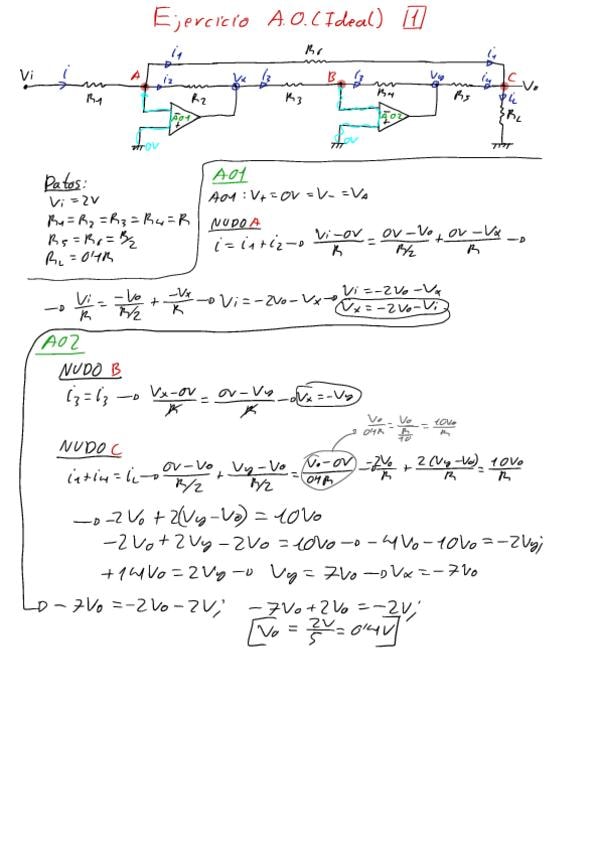 Ejercicio A.O.(Ideal) 1
i1 R6 i1
Vi i A i2 Vx i3 B i3 Vy i4 C Vo
R1 R2 R3 R4 R5 iL
AO1 AO2 RL
0V 0V
Datos:
Vi = 2V
R1=R2=R3=R4=R
R5=R6=R/2
RL=0'1R
AO1
AO1: V+=0V=V-=VA
NUDO A
i=i1+i2 → Vi-0V/R = 0V-Vo/R/2 + 0V-Vx/R →
→ Vi/R = -Vo/R/2 + -Vx/R → Vi=-2Vo-Vx → Vi=-2Vo-Vx
Vx=-2Vo-Vi
AO2
NUDO B
i3=i3 → Vx-0V/R = 0V-Vy/R → Vx=-Vy
Vo/0'1R = Vo/R/10 = 10Vo/R
NUDO C
i1+i4=iL → 0V-Vo/R/2 + Vy-Vo/R/2 = Vo-0V/0'1R → -2Vo/R + 2(Vy-Vo)/R = 10Vo/R
→ -2Vo+2(Vy-Vo)=10Vo
-2Vo+2Vy-2Vo=10Vo → -4Vo-10Vo=-2Vy;
+14Vo=2Vy → Vy=7Vo → Vx=-7Vo
→ -7Vo=-2Vo-2V; -7Vo+2Vo=-2V;
[Vo = 2V/5 = 0'4V]